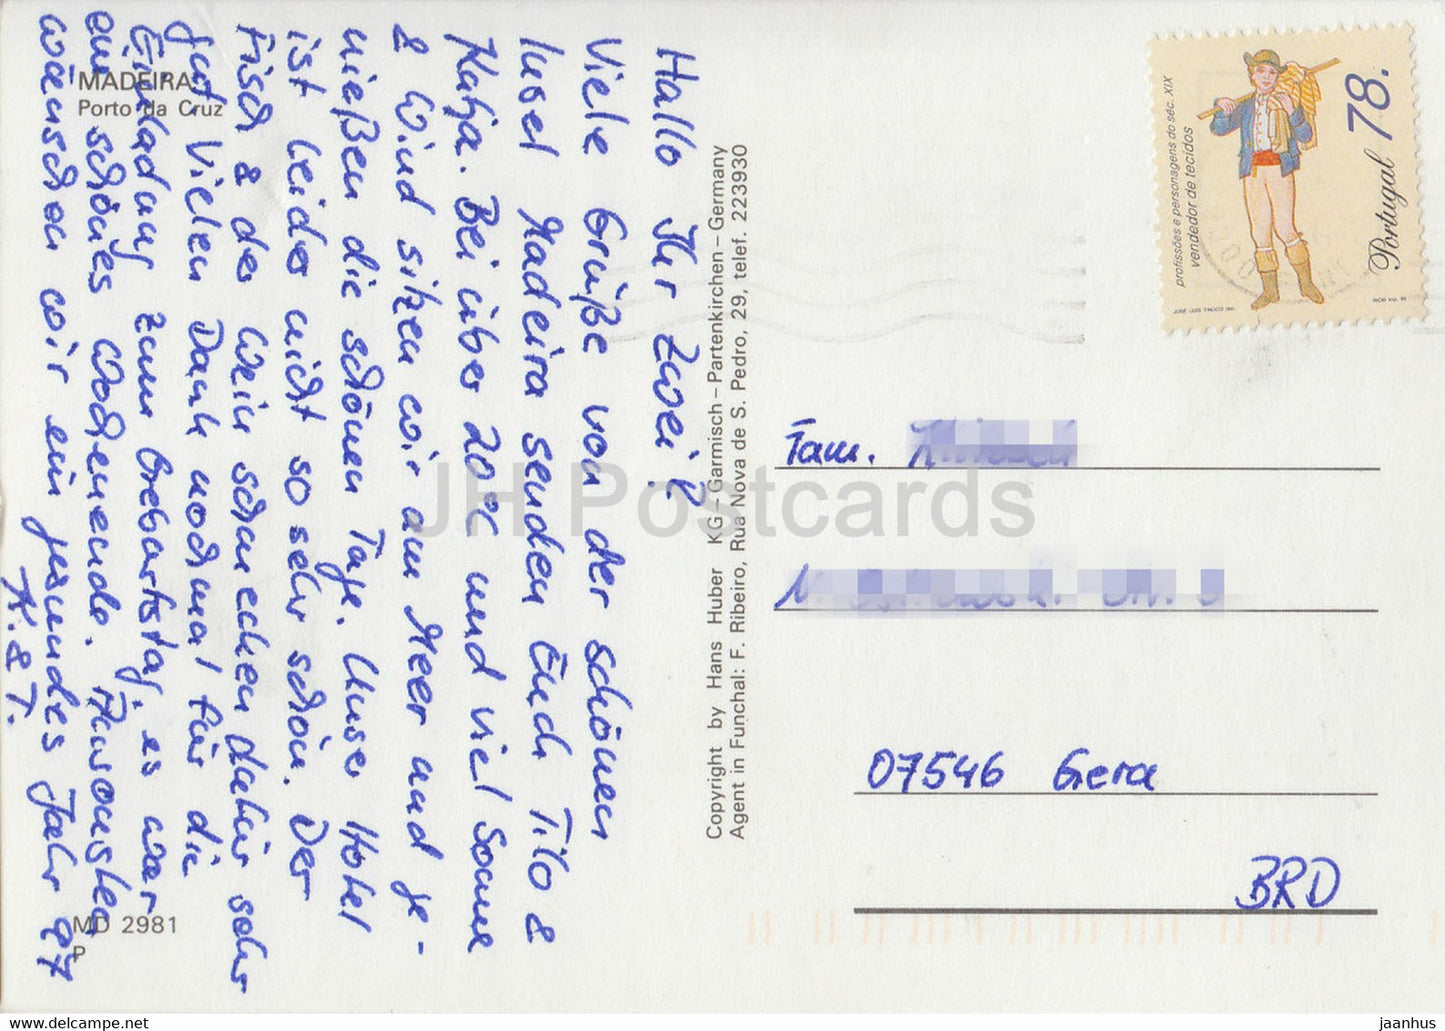 Hallo Ihr zwei!
Viele Grüße von der schönen
Insel Madeira senden Euch Tilo &
Katja. Bei über 20°C und viel Sonne
& Wind sitzen wir am Meer und ge-
nießen die schönen Tage. Unser Hotel
ist leider nicht so sehr schön. Der
Fisch & der Wein schmecken dafür sehr
gut. Vielen Dank nochmal für die
Einladung zum Geburtstag, es war
ein schönes Wochenende. Ansonsten
wünschen wir ein gesundes Jahr 97
K. & T.
MADEIRA
Porto da Cruz
MD 2981
P
Copyright by Hans Huber KG – Garmisch – Partenkirchen – Germany
Agent in Funchal: F. Ribeiro, Rua Nova de S. Pedro, 29, telef. 223930
profissões e personagens do séc. XIX
vendedor de tecidos
Portugal 78.
JOSÉ LUÍS TINOCO
Fam.
07546 Gera
BRD
JH Postcards
www.delcampe.net
jaanhus